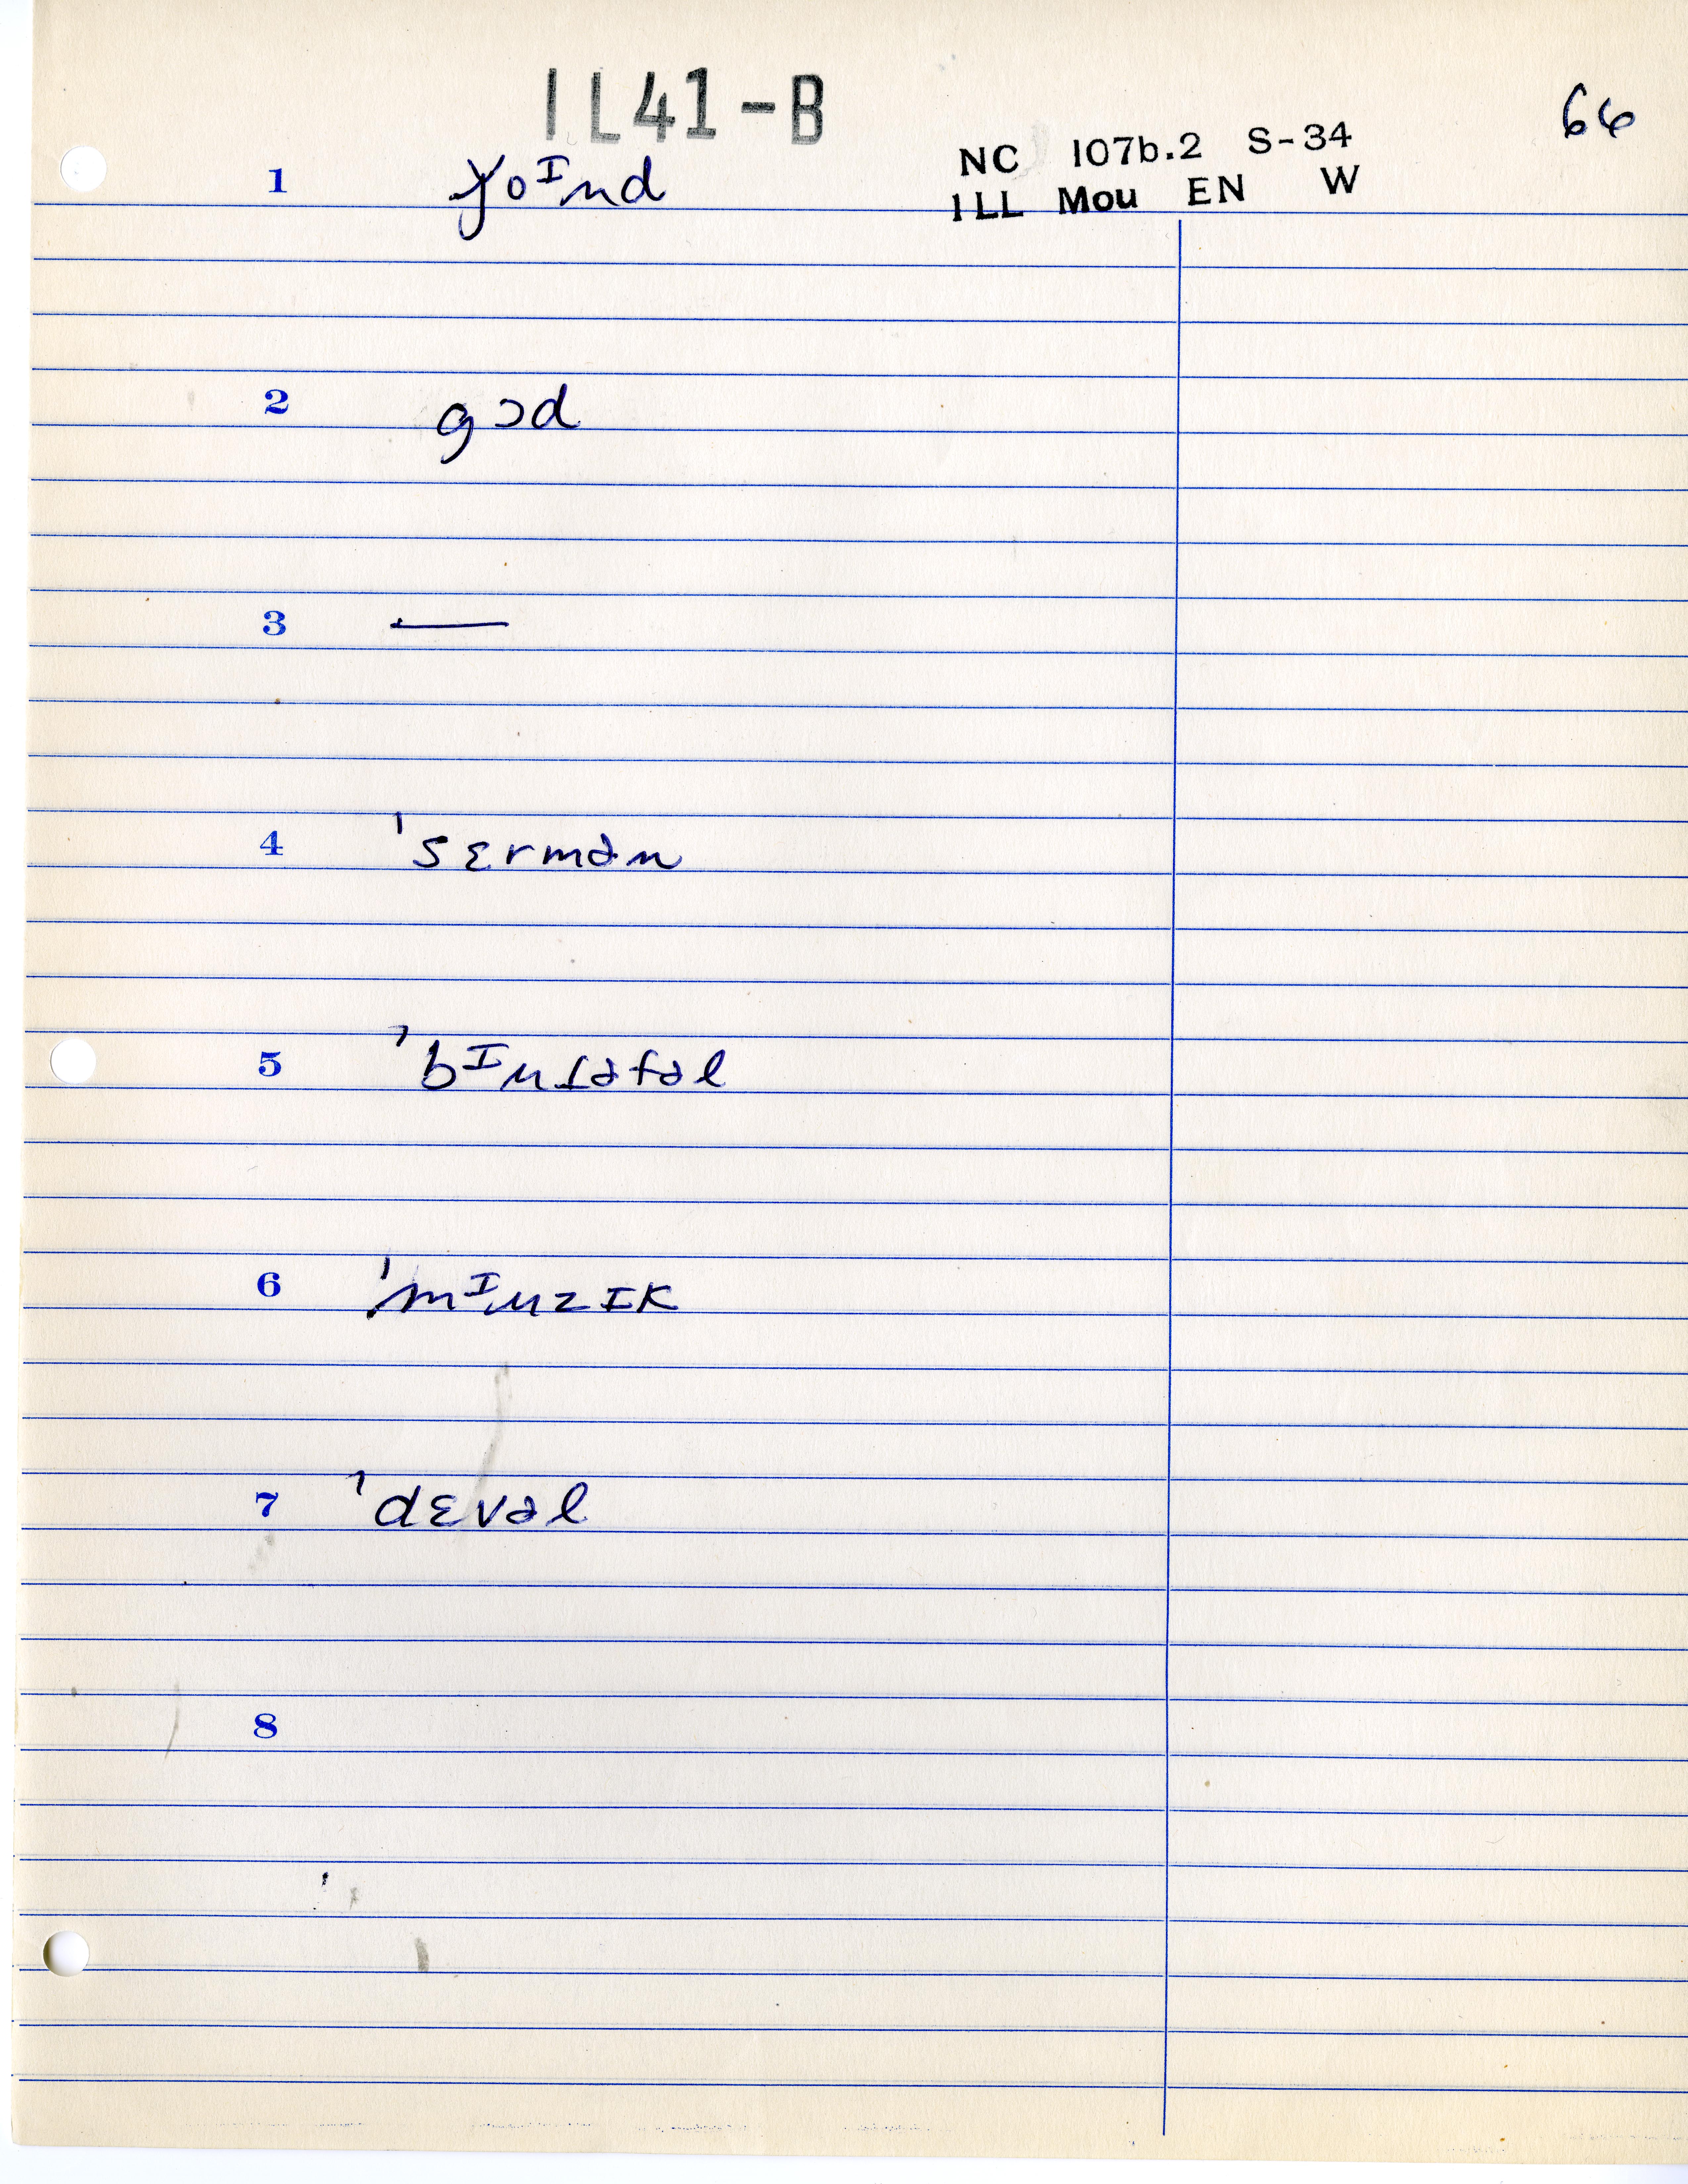 IL41-B
66
NC 107b.2 S-34
ILL Mou EN W
1 ɏoᴵnd
2 gɔd
3 —
4 ˈsɛrmən
5 ˈbᴵuɾəfəl
6 ˈmᴵuzɪk
7 ˈdɛvəl
8